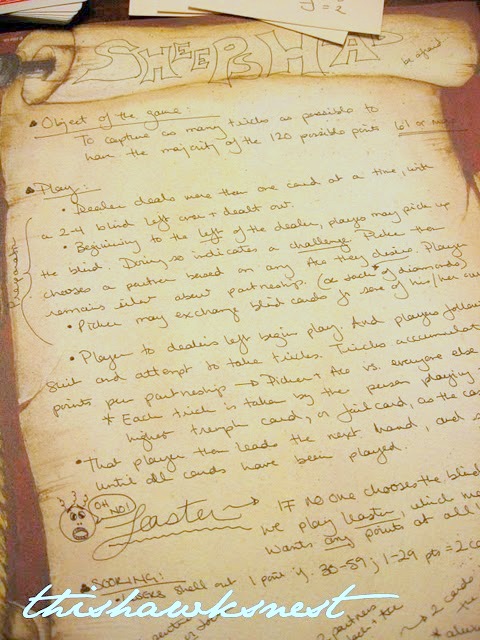 SHEEPSHEAD
be afraid
• Object of the game:
To capture as many tricks as possible to
have the majority of the 120 possible points 61 or more
• Play:
• Dealer deals more than one card at a time, with
a 2-4 blind left over & dealt out.
• Beginning to the left of the dealer, players may pick up
the blind. Doing so indicates a challenge. Picker then
chooses a partner based on any Ace they desire. Player
remains silent about partnership. (or Jack of diamonds)
• Picker may exchange blind cards for some of his/her
• Player to dealer's left begins play. And players follow
suit and attempt to take tricks. Tricks accumulat
points per partnership → Picker + Ace vs. everyone else
* Each trick is taken by the person playing
highest trump card, or fail card, as the cas
• That player then leads the next hand, and
until all cards have been played.
OH NO!
Leaster →
IF no one chooses the blind
we play leaster, which me
wants any points at all
• SCORING:
shell out 1 point if 30-59; 1-29 pts = 2
partners
2 cards
thishawksnest